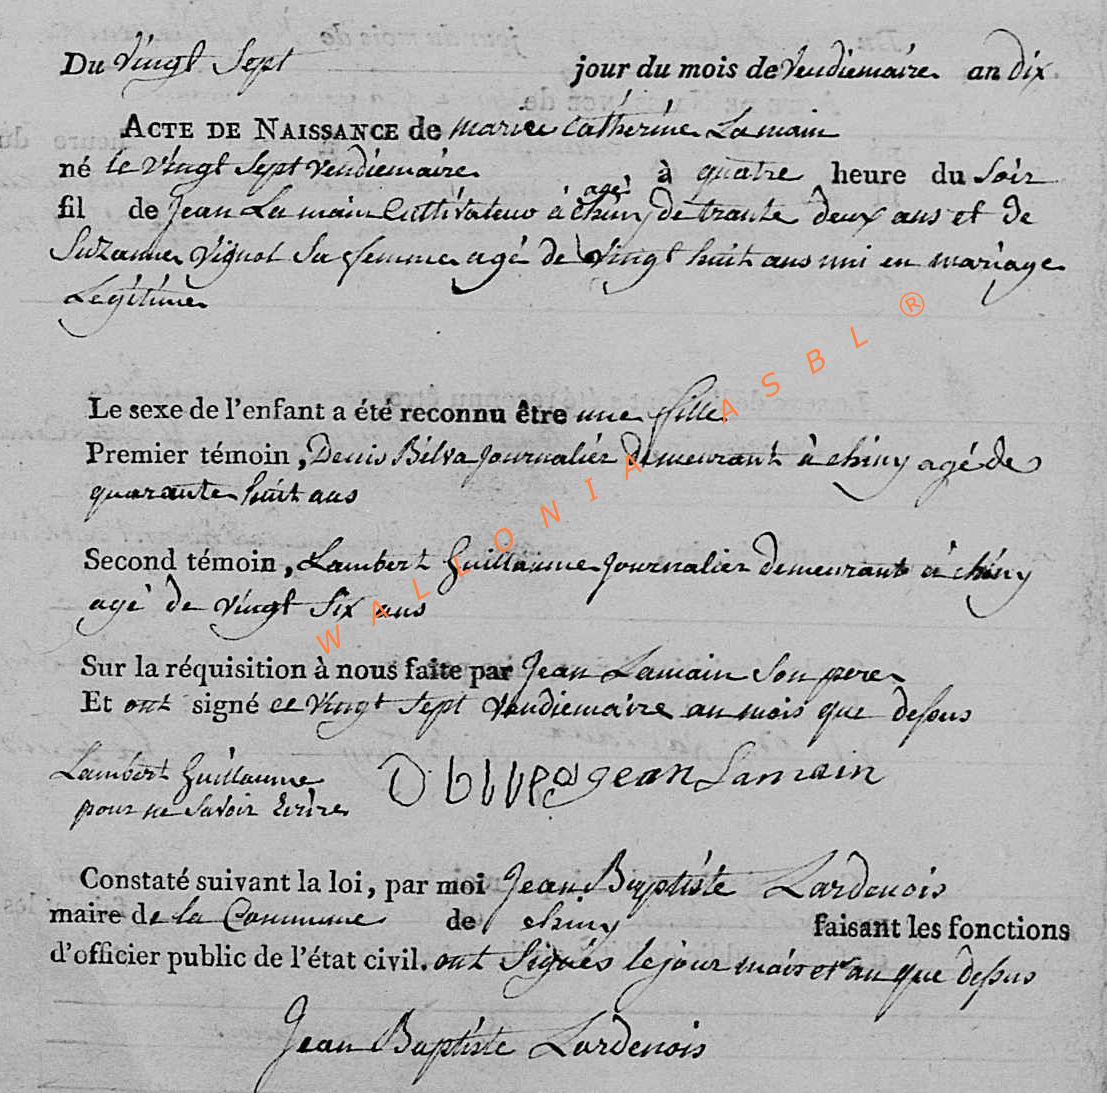 Du vingt sept jour du mois de vendiemaire an dix
ACTE DE NAISSANCE de marie catherine Lamain
né le vingt sept vendiemaire à quatre heure du soir
agé
fil de jean Lamain Cultivateur à chiny de trante deux ans et de
Suzanne vignot sa femme agé de vingt huit ans uni en mariage
Légitime
Le sexe de l'enfant a été reconnu être une fille
Premier témoin, Denis Bilva journalier demeurant à chiny agé de
quarante huit ans
Second témoin, Lambert Guillaume journalier demeurant à chiny
agé de vingt six ans
Sur la réquisition à nous faite par jean Lamain son pere
Et ont signé ce vingt sept vendiemaire an mois que dessus
Lambert Guillaume
pour ne savoir Ecrire
jean Lamain
Constaté suivant la loi, par moi jean Baptiste Lardenois
maire de la Commune de chiny faisant les fonctions
d'officier public de l'état civil. ont signés le jour mois et an que dessus
Jean Baptiste Lardenois
WALLONIA ASBL ®